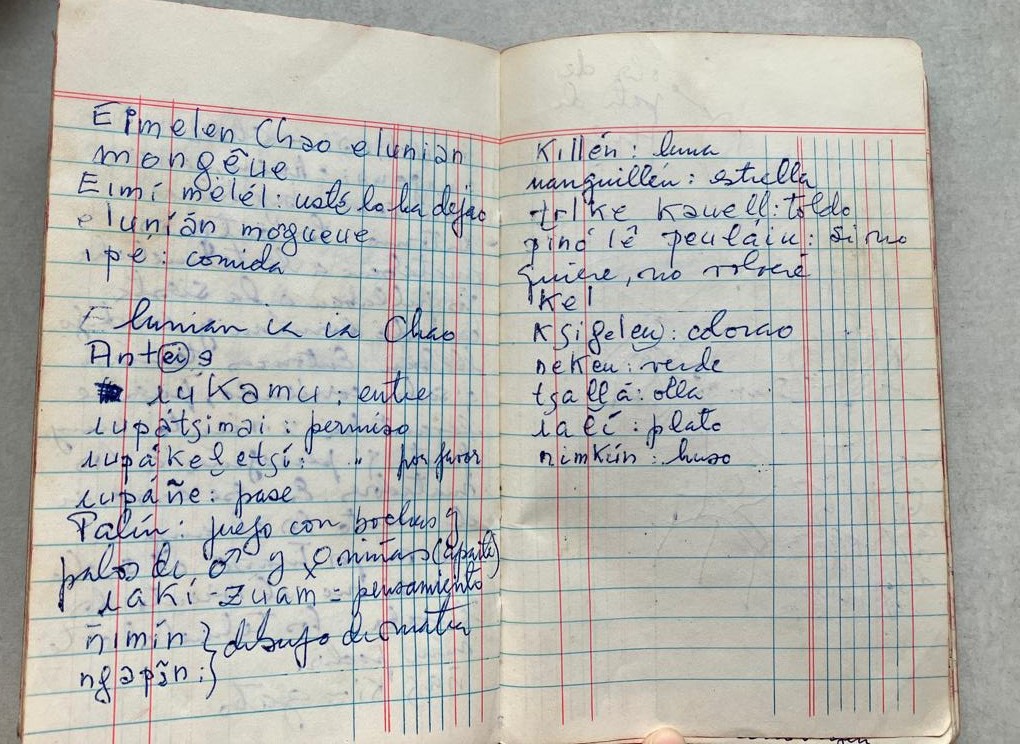 Eimelen Chao elunian
mongêue
Eimí melél: usté lo ha dejao
elunián mogueue
ipé: comida
Elunian ia ia Chao
Anteis
iúkamu: entre
iupátsimai: permiso
iupákeletsí: " por favor
iupáñe: pase
Palín: juego con bochas y
palos de ♂ y ♀ niñas (aparte)
iaki-zuam = pensamiento
ñimín } dibujo de matra
ngapĩn: }
Killén: luna
uanguillén: estrella
trlke kauell: toldo
pinó lê peuláiu: si no
quiere, no volveré
Kel
Ksigeleu: colorao
neKeu: verde
tsallá: olla
ialí: plato
nimkún: huso